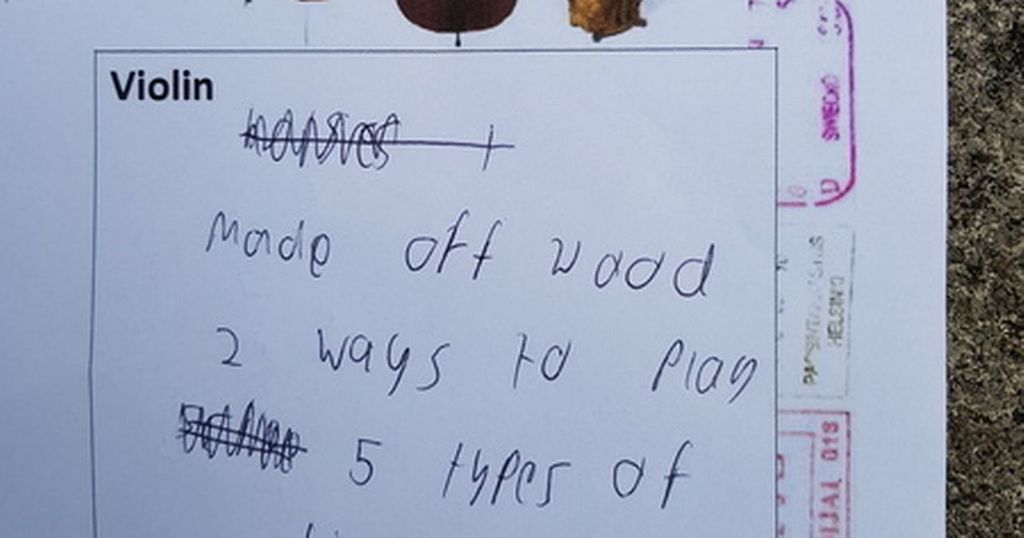 Violin
Made off wood
2 ways to play
5 types of
SWIECKO
HELSINKI
018